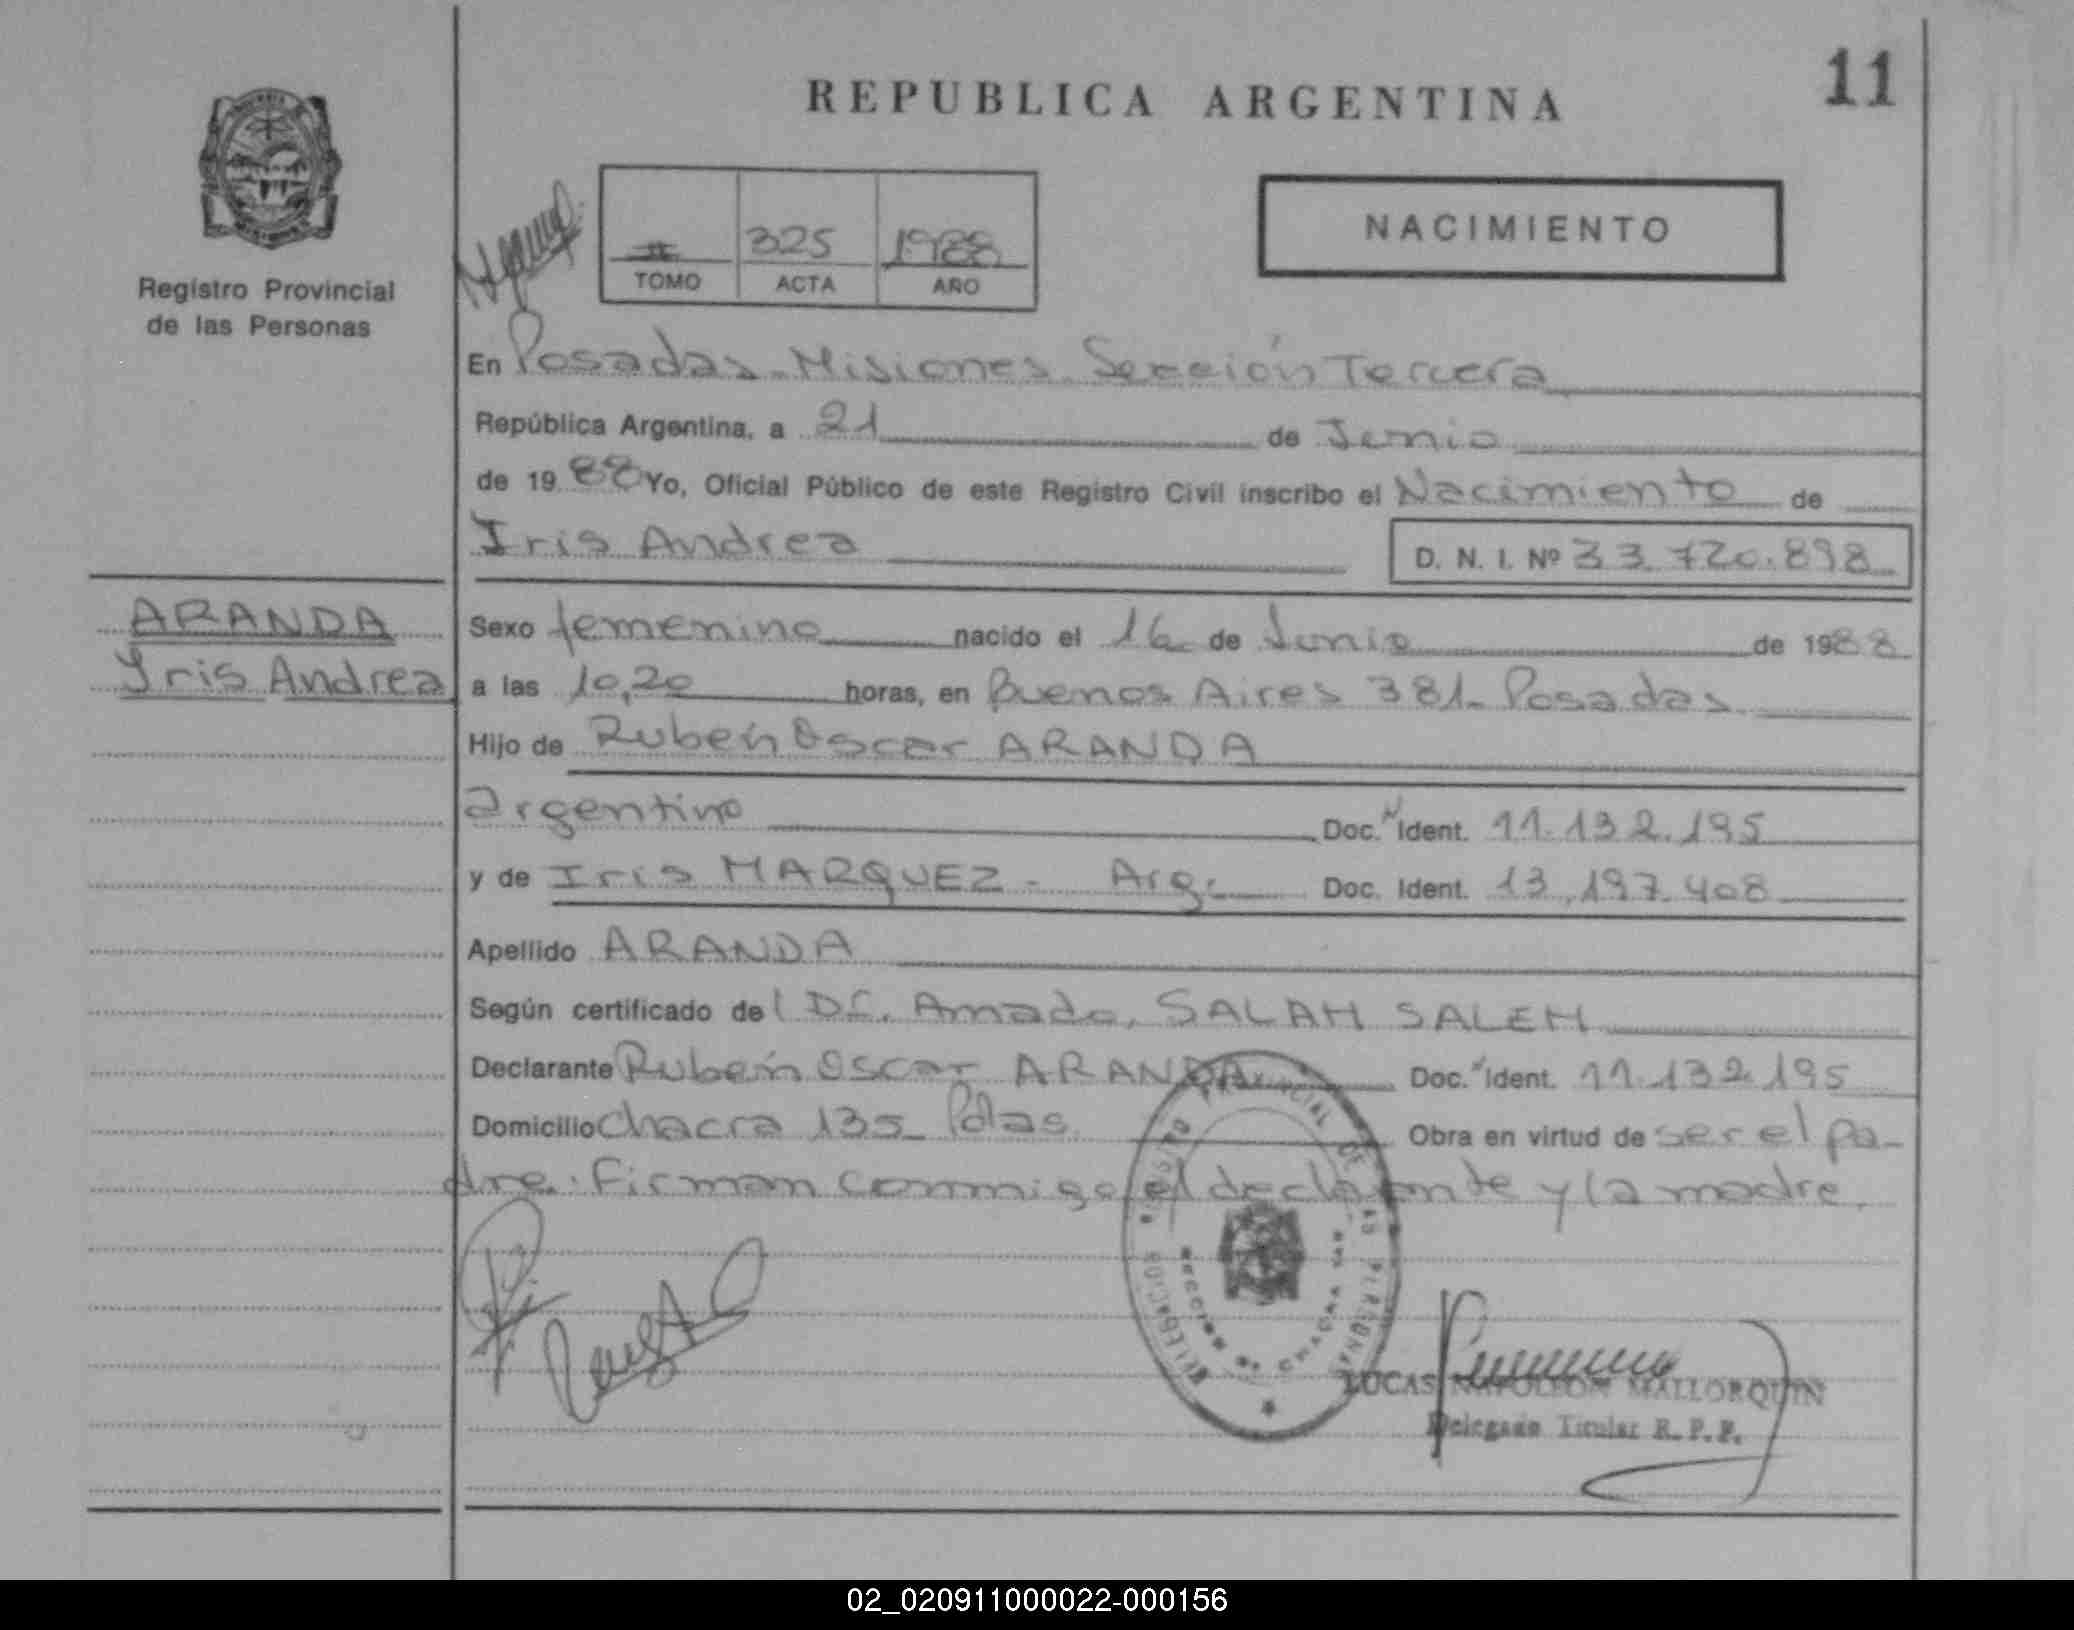 11
REPUBLICA ARGENTINA
Registro Provincial
de las Personas
II 325 1988
TOMO ACTA AÑO
NACIMIENTO
En Posadas - Misiones - Sección Tercera
República Argentina, a 21 de Junio
de 19 88 Yo, Oficial Público de este Registro Civil inscribo el Nacimiento de
Iris Andrea
D. N. I. Nº 33.720.898
ARANDA
Iris Andrea
Sexo femenino nacido el 16 de Junio de 1988
a las 10,20 horas, en Buenos Aires 381 - Posadas
Hijo de Rubén Oscar ARANDA
argentino Doc. Ident. 11.132.195
y de Iris MARQUEZ - Arg. Doc. Ident. 13.197.408
Apellido ARANDA
Según certificado del Dr. Amado, SALAH SALEH
Declarante Rubén Oscar ARANDA Doc. Ident. 11.132.195
Domicilio Chacra 135 - Pdas. Obra en virtud de ser el pa-
dre. Firman conmigo el declarante y la madre.
DELEGACION REGISTRO PROVINCIAL DE LAS PERSONAS
LUCAS NAPOLEON MALLORQUIN
Delegado Titular R. P. P.
02_020911000022-000156